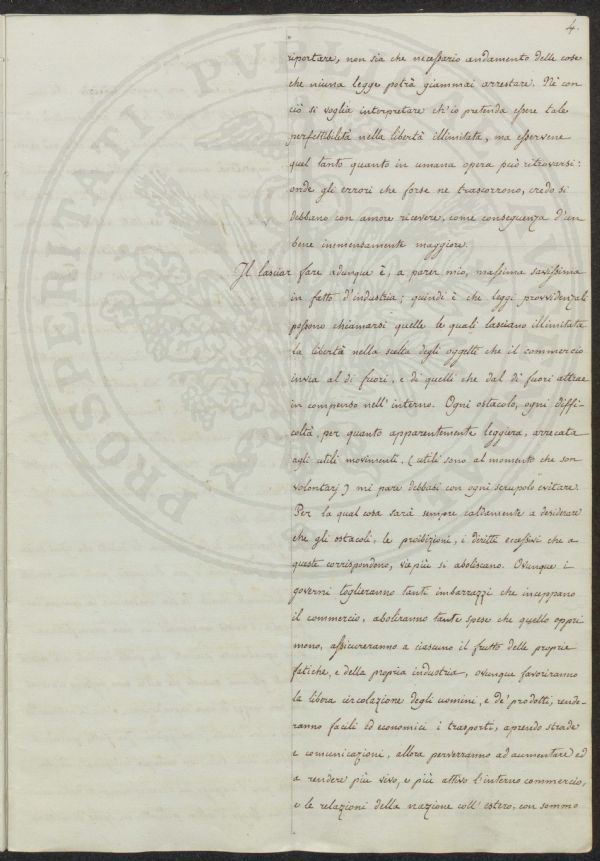 4.
riportare, non sia che necessario andamento delle cose
che niuna legge potrà giammai arrestare. Nè con
ciò si voglia interpretare ch'io pretenda essere tale
perfettibilità nella libertà illimitata, ma esservene
quel tanto quanto in umana opera può ritrovarsi:
onde gli errori che forse ne trascorrono, credo si
debbano con amore ricevere, come conseguenza d'un
bene immensamente maggiore.
Il lasciar fare adunque è, a parer mio, massima savissima
in fatto d'industria; quindi è che leggi provvidenziali
possono chiamarsi quelle le quali lasciano illimitata
la libertà nella scelta degli oggetti che il commercio
invia al di fuori, e di quelli che dal di fuori attrae
in compenso nell'interno. Ogni ostacolo, ogni diffi-
coltà, per quanto apparentemente leggiera, arrecata
agli utili movimenti, (utili sono al momento che son
volontarj) mi pare debbasi con ogni scrupolo evitare.
Per la qual cosa sarà sempre caldamente a desiderare
che gli ostacoli, le proibizioni, i diritti eccessivi che a
queste corrispondono, vie più si aboliscano. Ovunque i
governi toglieranno tanti imbarrazzi che inceppano
il commercio, aboliranno tante spese che quello oppri
mono, assicureranno a ciascuno il frutto delle proprie
fatiche, e della propria industria, ovunque favoriranno
la libera circolazione degli uomini, e de' prodotti, rende-
ranno facili ed economici i trasporti, aprendo strade
e comunicazioni, allora perverranno ad aumentare ed
a rendere più vivo, e più attivo l'interno commercio,
e le relazioni della nazione coll'estero, con sommo
PROSPERITATI PVBL